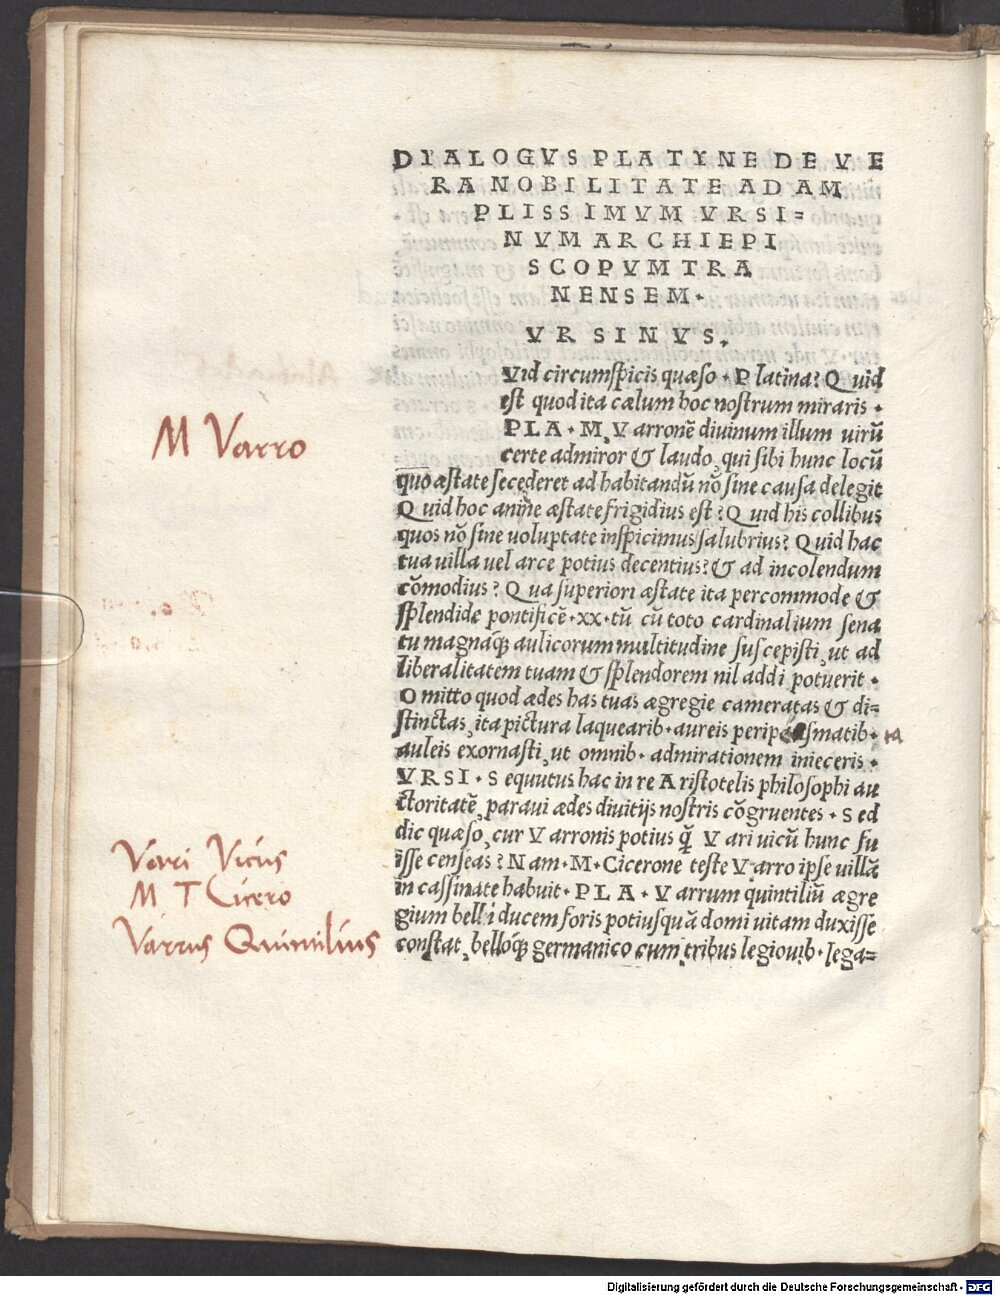 DYALOGVS PLATYNE DE VE
RA NOBILITATE AD AM
PLISSIMVM VRSI=
NVM ARCHIEPI
SCOPVM TRA
NENSEM.
VRSINVS.
Vid circumspicis quæso . Platina? Quid
est quod ita cælum hoc nostrum miraris .
PLA . M. Varronē diuinum illum uirū
certe admiror & laudo, qui sibi hunc locū
quo æstate secederet ad habitandū nō sine causa delegit
Quid hoc amne æstate frigidius est? Quid his collibus
quos nō sine uoluptate inspicimus salubrius? Quid hac
tua uilla uel arce potius decentius? & ad incolendum
cōmodius? Qua superiori æstate ita percommode &
splendide pontificē . xx . tū cū toto cardinalium sena
tu magnaq̃ aulicorum multitudine suscepisti, ut ad
liberalitatem tuam & splendorem nil addi potuerit .
Omitto quod ædes has tuas ægregie cameratas & di=
stinctas, ita pictura laquearib . aureis peripetasmatib .
auleis exornasti, ut omnib . admirationem inieceris .
VRSI . Sequutus hac in re Aristotelis philosophi au
ctoritatē, paraui ædes diuitijs nostris cōgruentes . Sed
dic quæso, cur Varronis potius q̃ Vari uicū hunc fu
isse censeas? Nam . M . Cicerone teste Varro ipse uillā
in cassinate habuit . PLA . Varrum quintiliū ægre
gium belli ducem foris potiusquā domi uitam duxisse
constat, belloq̃ germanico cum tribus legionib . lega=
M Varro
Vari Vicus
M T Cicero
Varrus Quintilius
Digitalisierung gefördert durch die Deutsche Forschungsgemeinschaft - DFG